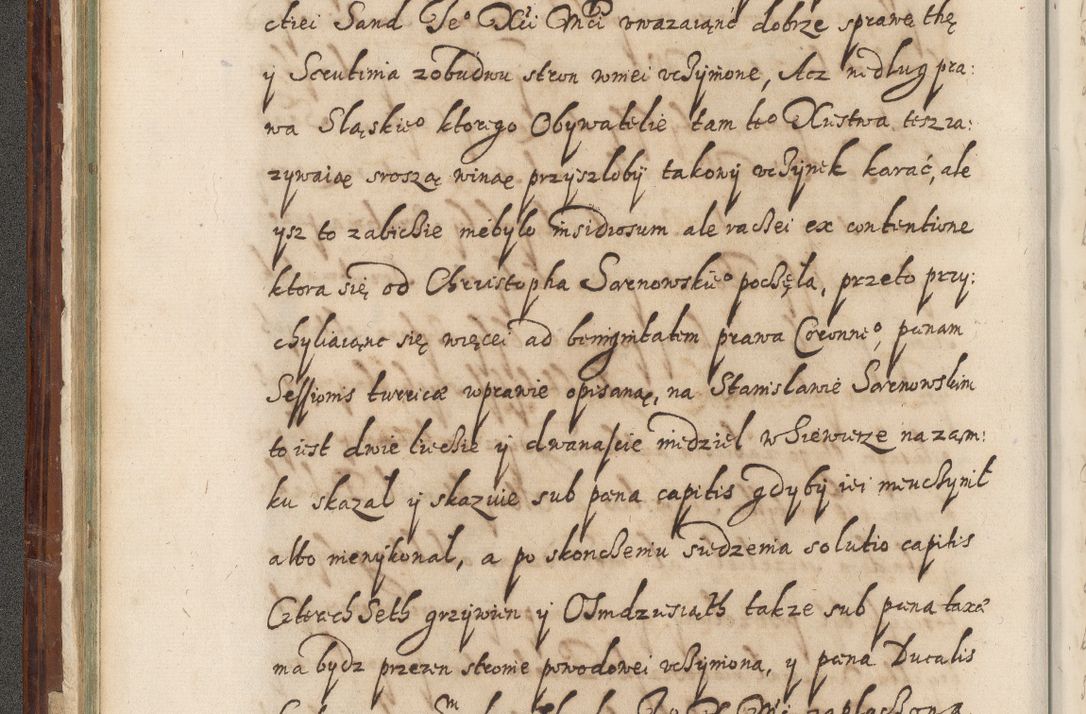 ctiei Sand Je° Xci Mci vwazaiąnc dobrze sprawę thę
y Scrutinia zobudwu stron wniei vchÿnione, Acz niedług pra:
wa Sląskie° ktorego Obÿwatelie tam te° Xiestwa tesz za:
zÿwaiąę sroszą winaę przÿszlobÿ takowÿ vchÿnek karać, ale
ÿsz to zabichie niebÿlo insidiosum ale rachei ex contentione
ktora się od Christopha Sarnowskie° pochęla, przeto przÿ:
chÿliaiąnc się więcei ad benignitatem prawa Coronne°, pœnam
Sessionis turricæ wprawie opisanaę, na Stanislawie Sarnowskim
to iest dwie liechie ÿ dwanascie niedziel w Siewierze na zam:
ku skazal ÿ skazuie sub pœna capitis gdÿbÿ iei nieuchÿnił
albo niewÿkonał, a po skoncheniu siedzenia solutio capitis
Czterech Seth grzÿwien ÿ Osmdziesiąth takze sub pœna taxæ
ma bÿdz przezen stronie powodowei vchÿniona, ÿ pœna Ducalis